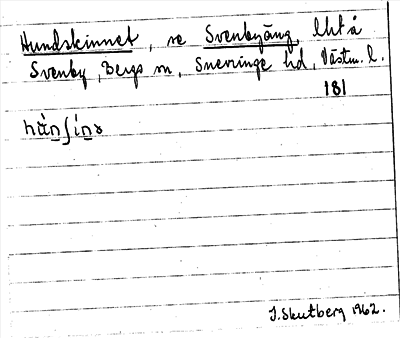 Hundskinnet, se Svenbyäng, lht å
Svenby, Bergs sn, Snevringe hd, Västm. l.
181
hùnʃìnə
J. Skutberg 1962.